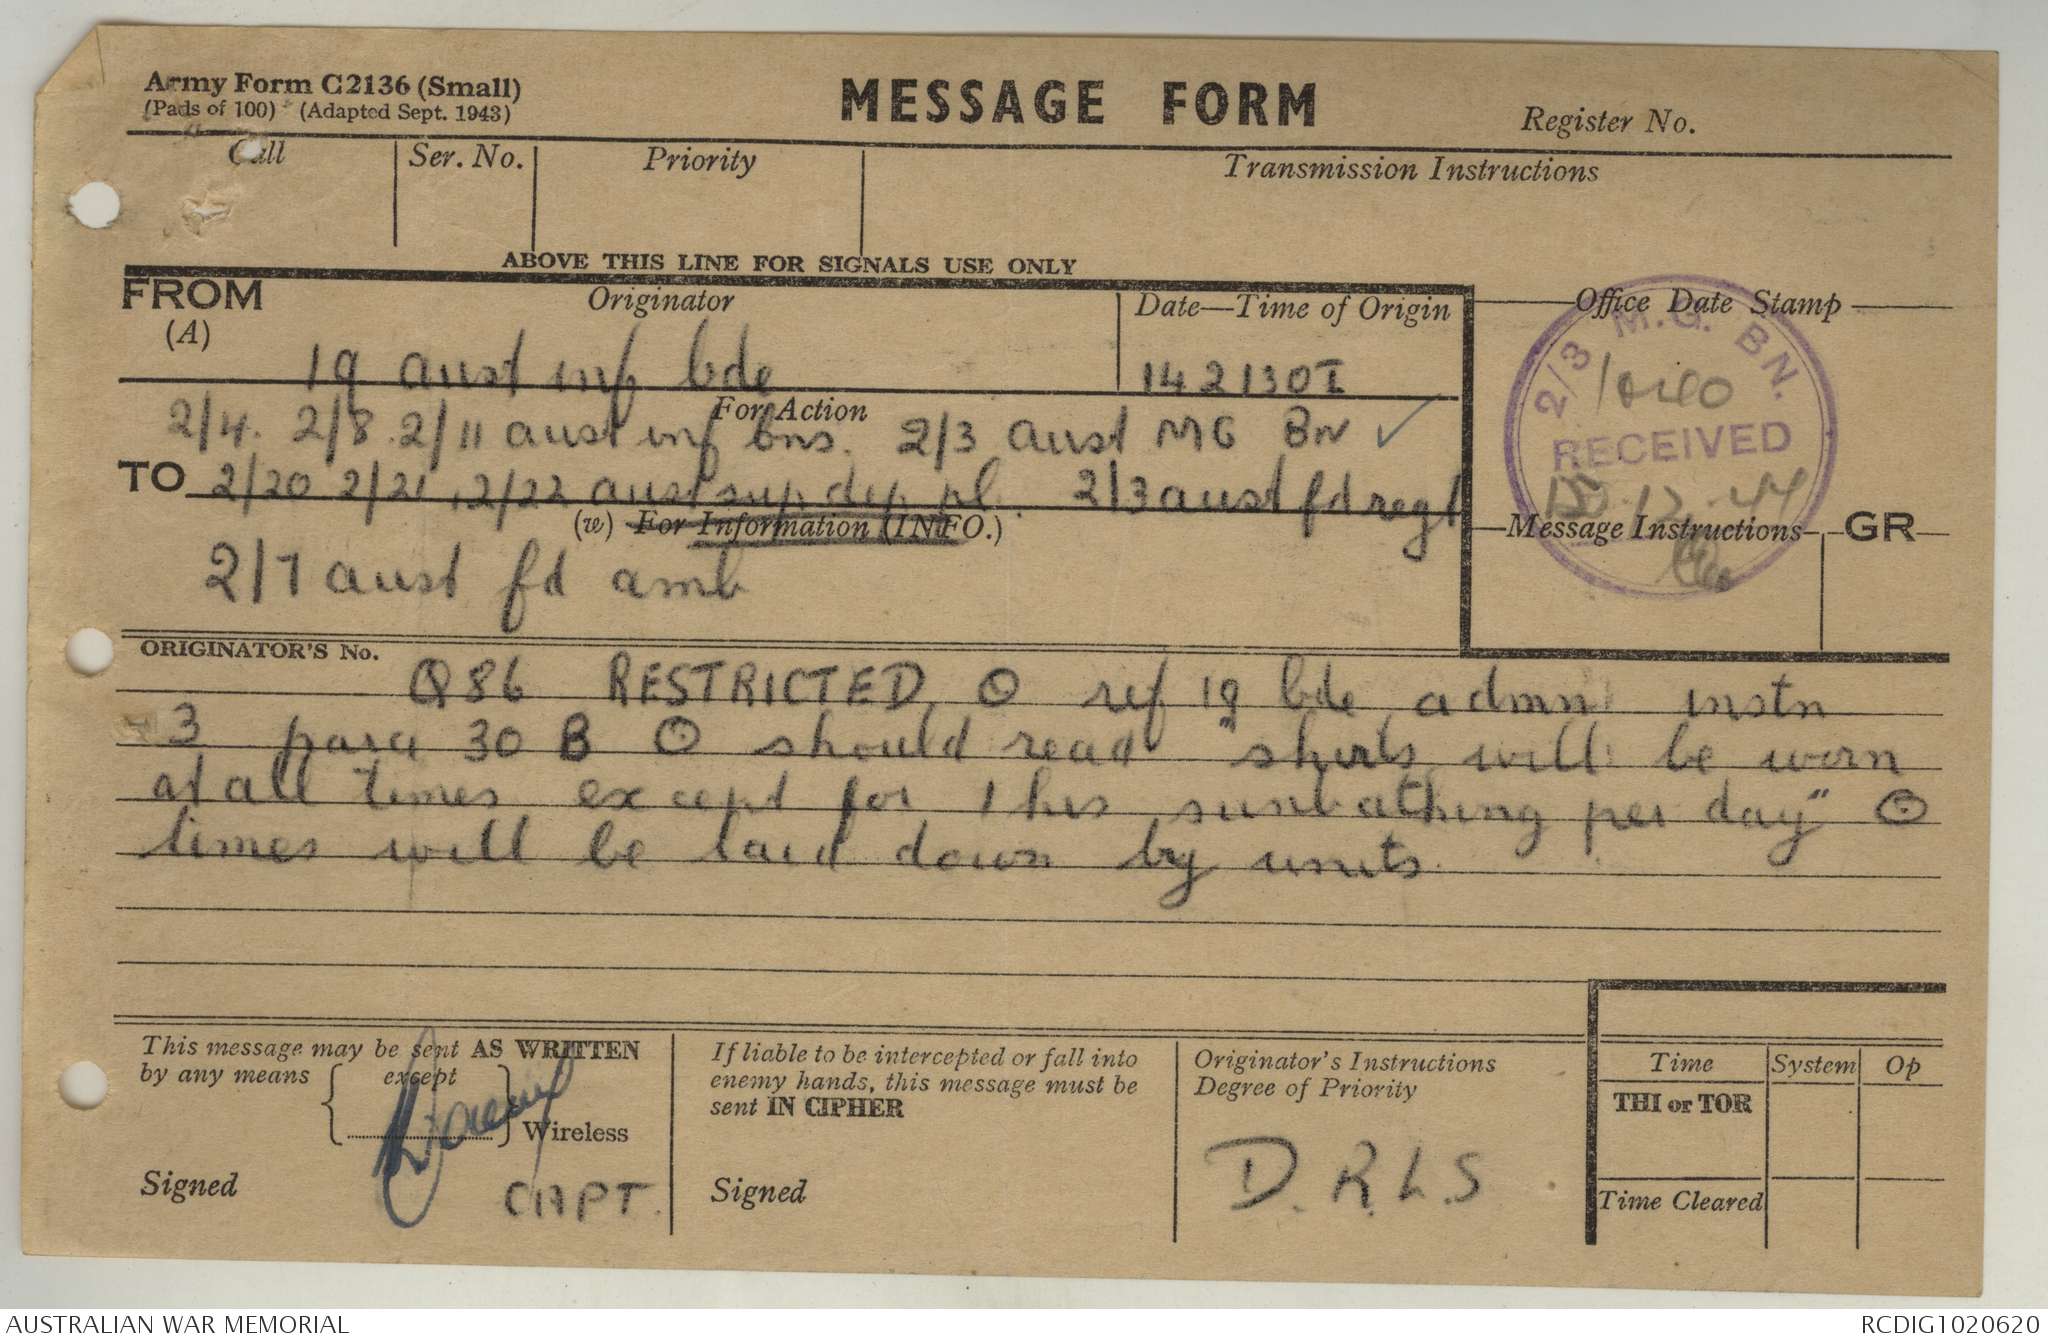 Army Form C2136 (Small)
(Pads of 100) (Adapted Sept. 1943)
MESSAGE FORM
Register No.
Call
Ser. No.
Priority
Transmission Instructions
ABOVE THIS LINE FOR SIGNALS USE ONLY
FROM
(A)
Originator
Date—Time of Origin
Office Date Stamp
19 aust inf bde
142130I
For Action
2/4. 2/8. 2/11 aust inf bns. 2/3 aust MG BN ✓
TO 2/20 2/21, 2/22 aust sup dep pl. 2/3 aust fd regt
(w) For Information (INFO.)
2/7 aust fd amb
2/3 M.G. BN.
RECEIVED
15.12.44
Message Instructions
GR
ORIGINATOR'S No.
Q86 RESTRICTED ⊙ ref 19 bde admn instn
3 para 30 B ⊙ should read "shirts will be worn
at all times except for 1 hrs sunbathing per day" ⊙
times will be laid down by units.
This message may be sent AS WRITTEN
by any means except
Wireless
Signed
CAPT.
If liable to be intercepted or fall into
enemy hands, this message must be
sent IN CIPHER
Signed
Originator's Instructions
Degree of Priority
D.R.L.S.
Time
System
Op
THI or TOR
Time Cleared
AUSTRALIAN WAR MEMORIAL
RCDIG1020620